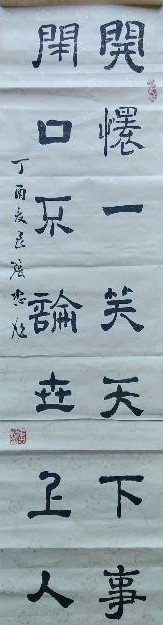 開懷一笑天下事
閉口不論世上人
丁酉夏呂